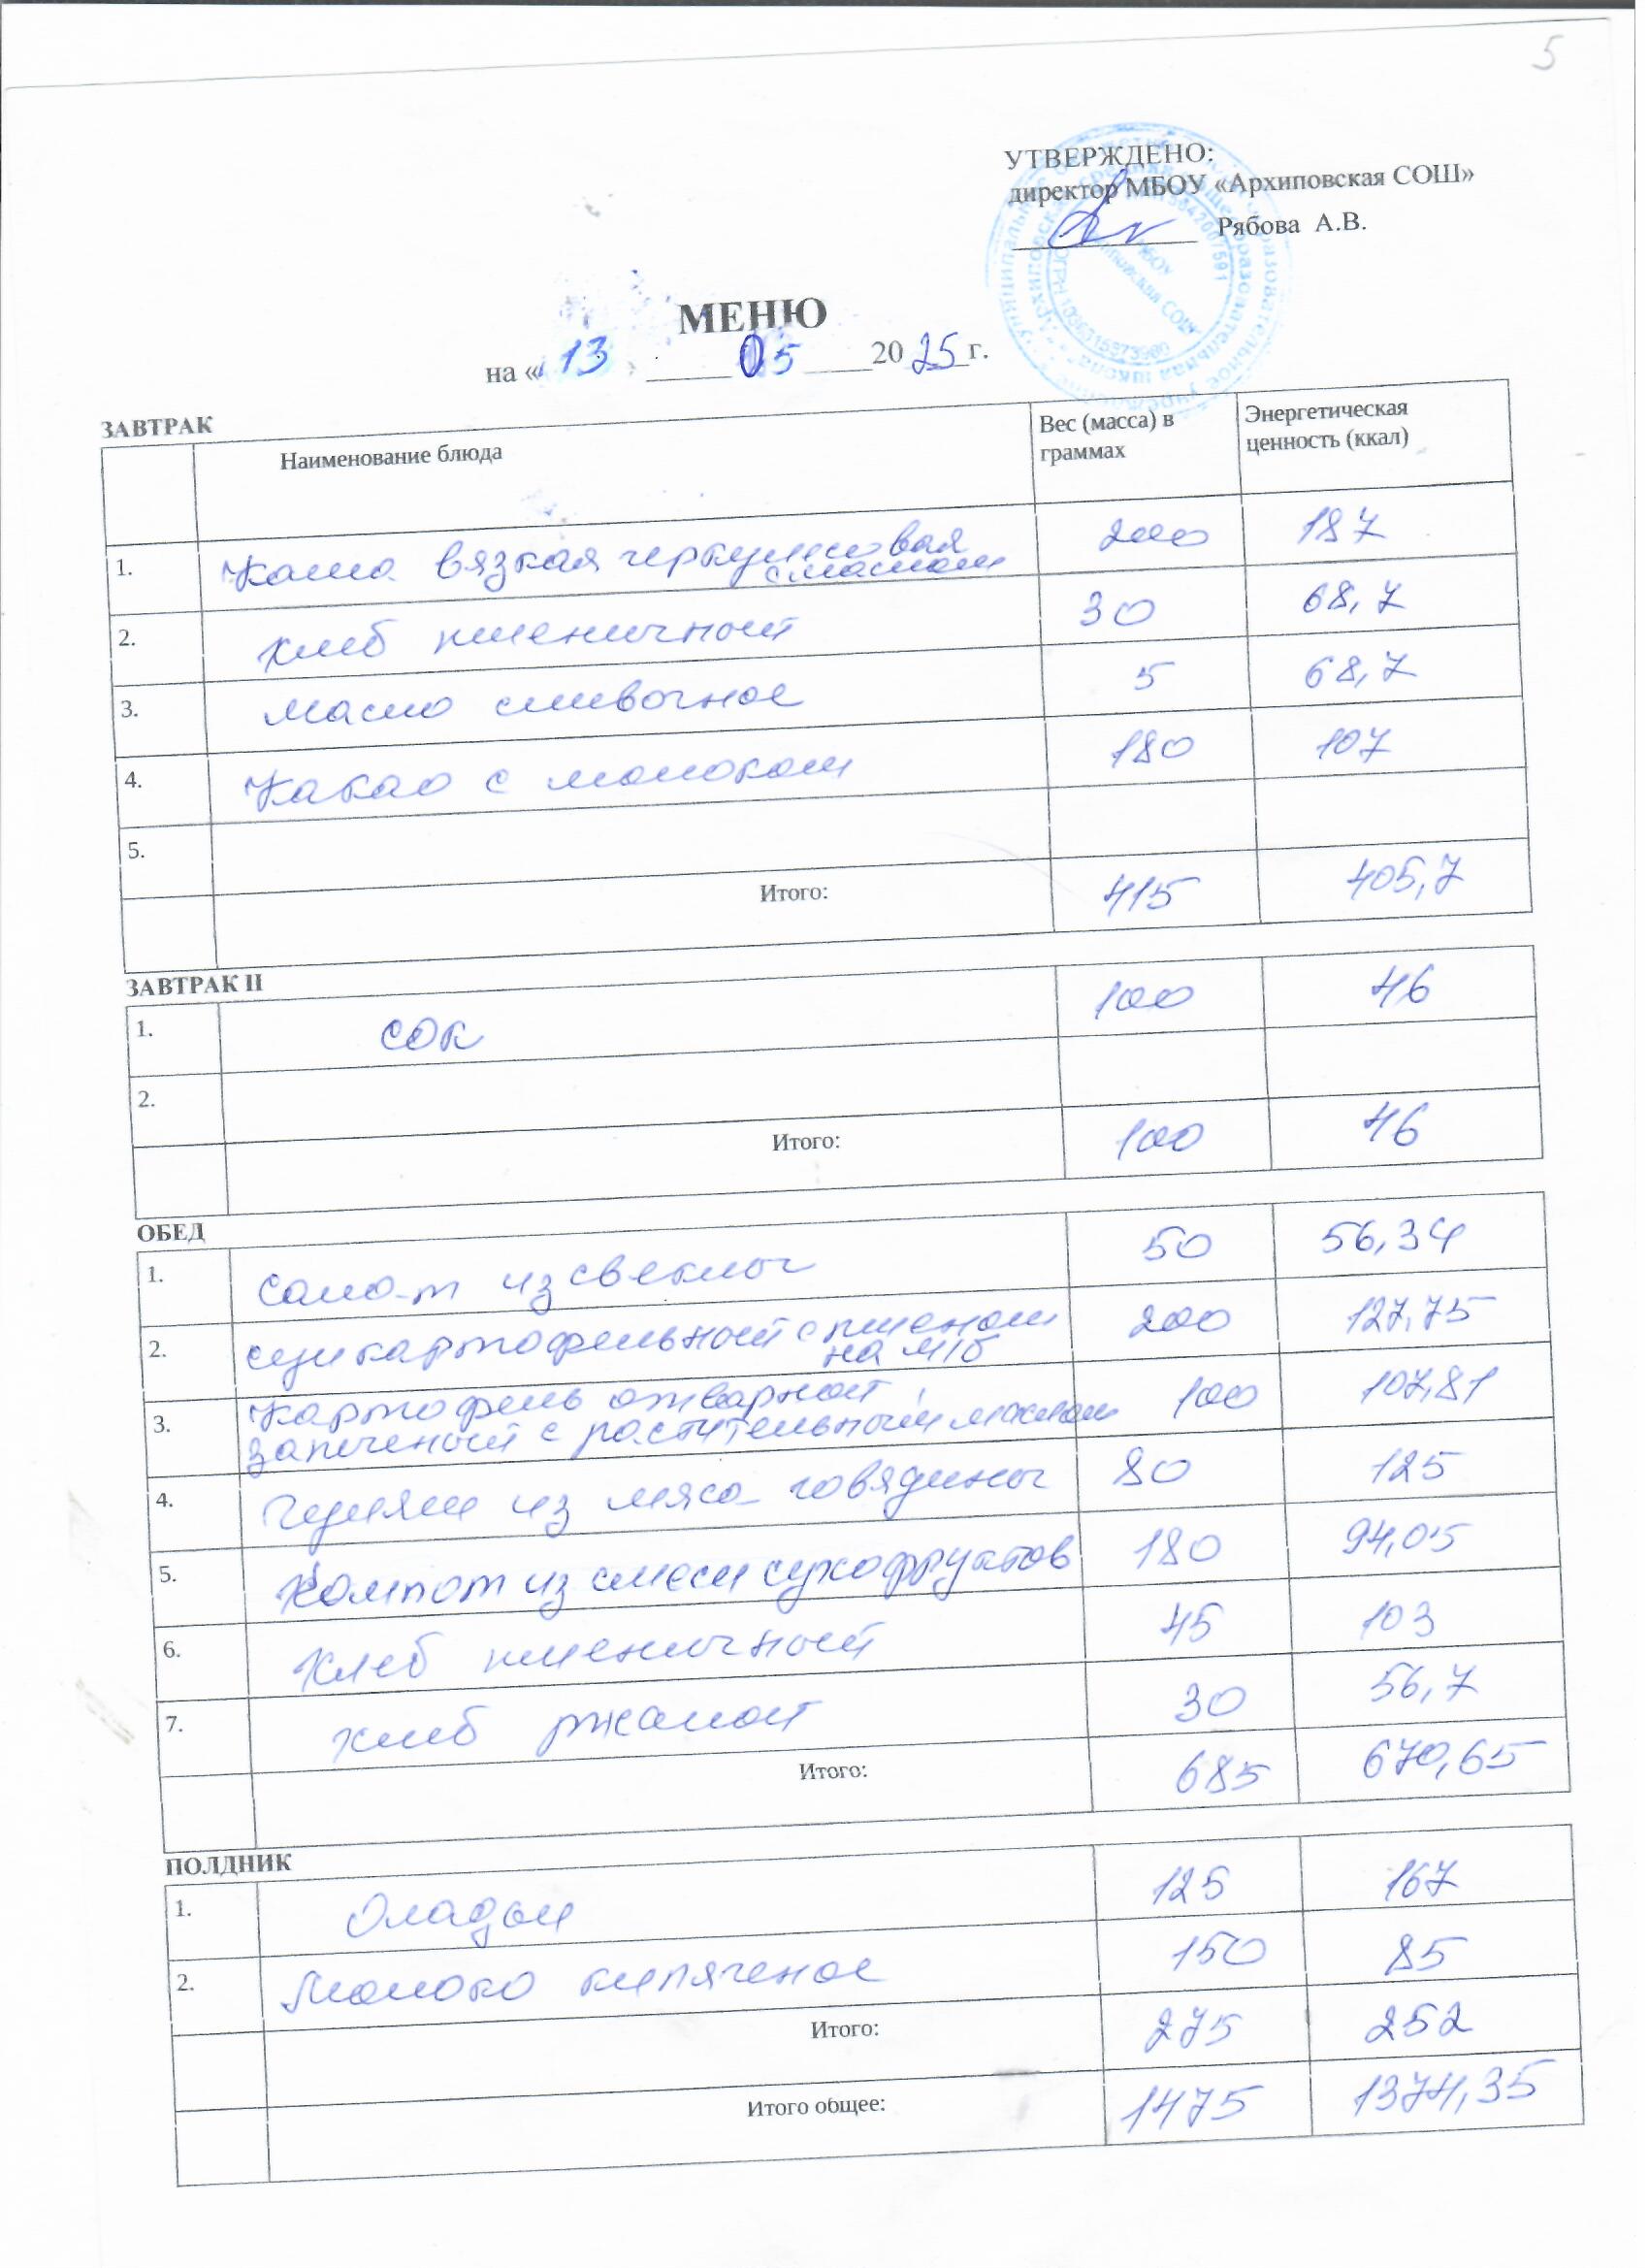 5
УТВЕРЖДЕНО:
директор МБОУ «Архиповская СОШ»
Рябова А.В.
МЕНЮ
на «13» 05 2025 г.
ЗАВТРАК
Наименование блюда Вес (масса) в граммах Энергетическая ценность (ккал)
1. Каша вязкая геркулесовая с маслом 200 187
2. хлеб пшеничный 30 68,7
3. Масло сливочное 5 68,7
4. Какао с молоком 180 107
5.
Итого: 415 405,7
ЗАВТРАК II
1. сок 100 46
2.
Итого: 100 46
ОБЕД
1. Салат из свеклы 50 56,34
2. суп картофельный с пшеном на м/б 200 127,75
3. Картофель отварной запеченый с растительным маслом 100 107,81
4. Гуляш из мяса говядины 80 125
5. Компот из смеси сухофруктов 180 94,05
6. Хлеб пшеничный 45 103
7. хлеб ржаной 30 56,7
Итого: 685 670,65
ПОЛДНИК
1. Оладьи 125 167
2. Молоко кипяченое 150 85
Итого: 275 252
Итого общее: 1475 1374,35